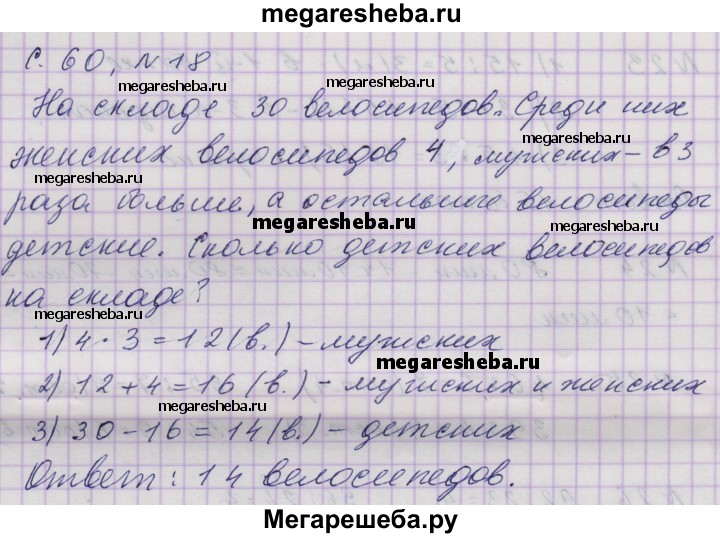 megaresheba.ru
С. 60, N 18
megaresheba.ru
На складе 30 велосипедов. Среди них
megaresheba.ru
женских велосипедов 4, мужских – в 3
megaresheba.ru
раза больше, а остальные велосипеды
megaresheba.ru
детские. Сколько детских велосипедов
на складе?
megaresheba.ru
1) 4 · 3 = 12 (в.) – мужских
megaresheba.ru
2) 12 + 4 = 16 (в.) – мужских и женских
megaresheba.ru
3) 30 – 16 = 14 (в.) – детских
Ответ: 14 велосипедов.
Мегарешеба.ру